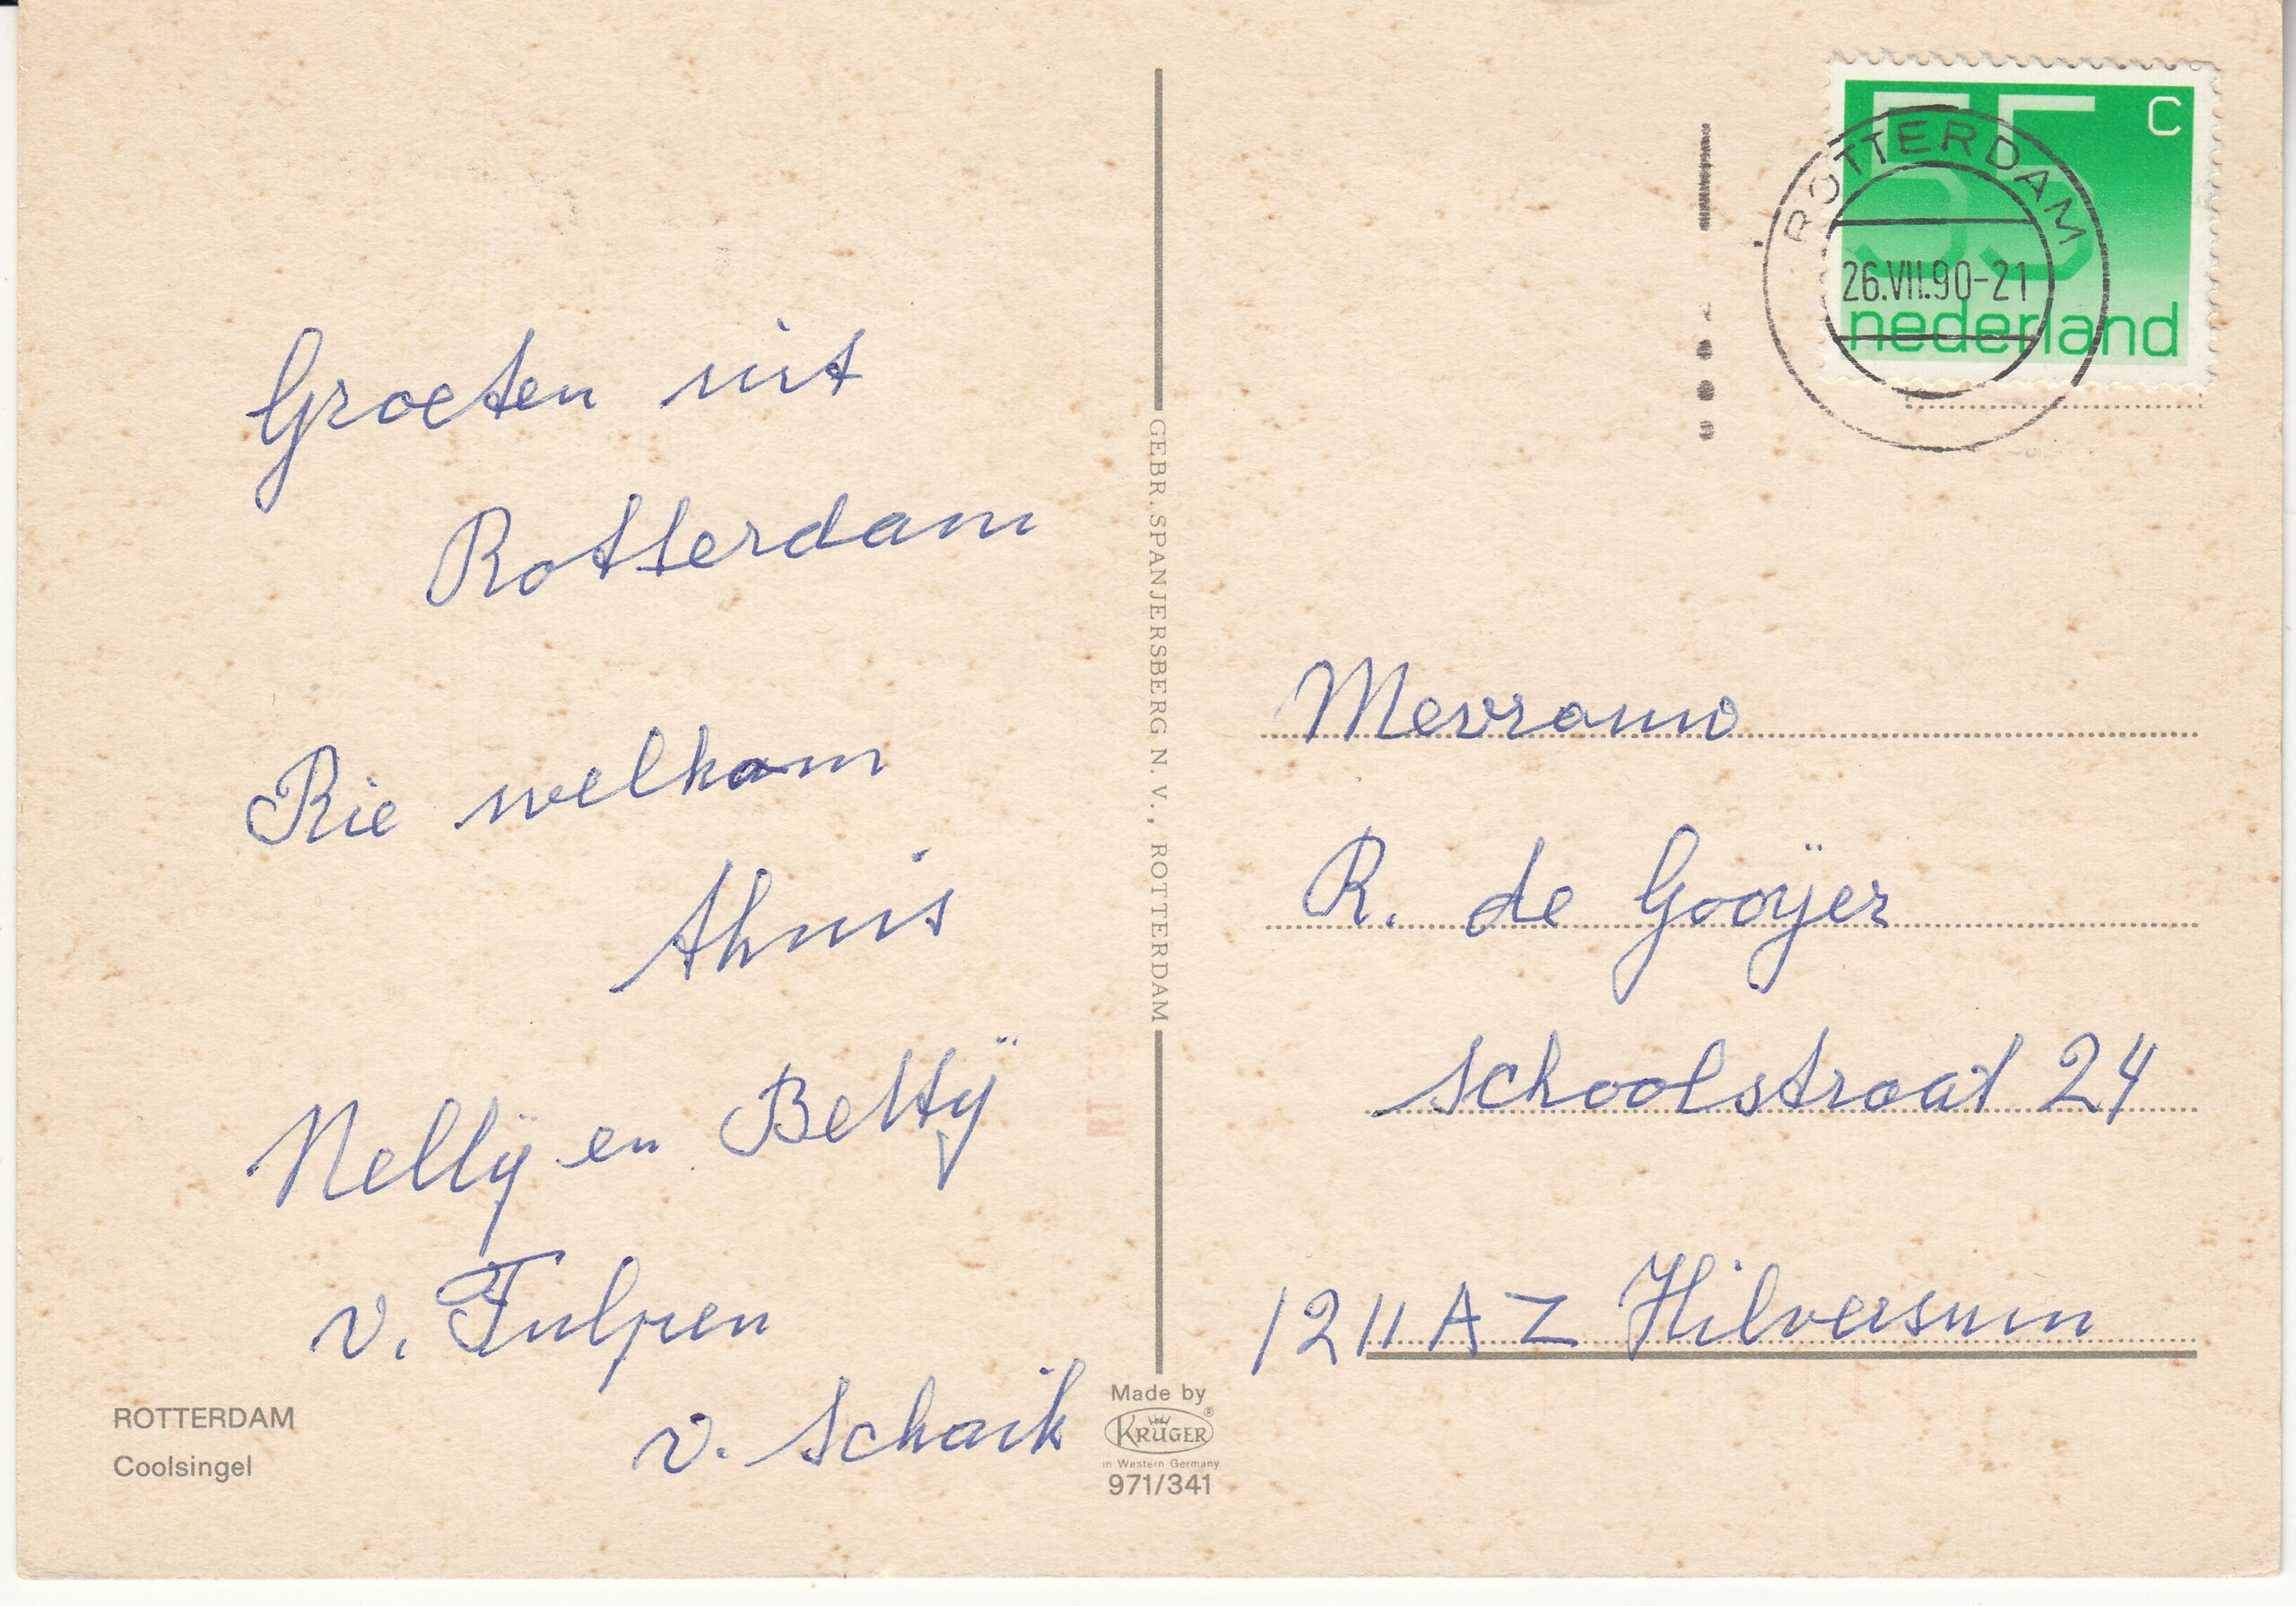 Groeten uit
Rotterdam
Rie welkom
thuis
Nellÿ en Bettÿ
v. Tulpen
v. Schaik
ROTTERDAM
Coolsingel
GEBR. SPANJERSBERG N.V., ROTTERDAM
Made by
KRÜGER ®
in Western Germany
971/341
55 c
nederland
ROTTERDAM
26.VII.90-21
Mevrouw
R. de Gooÿer
Schoolstraat 24
1211 AZ Hilversum